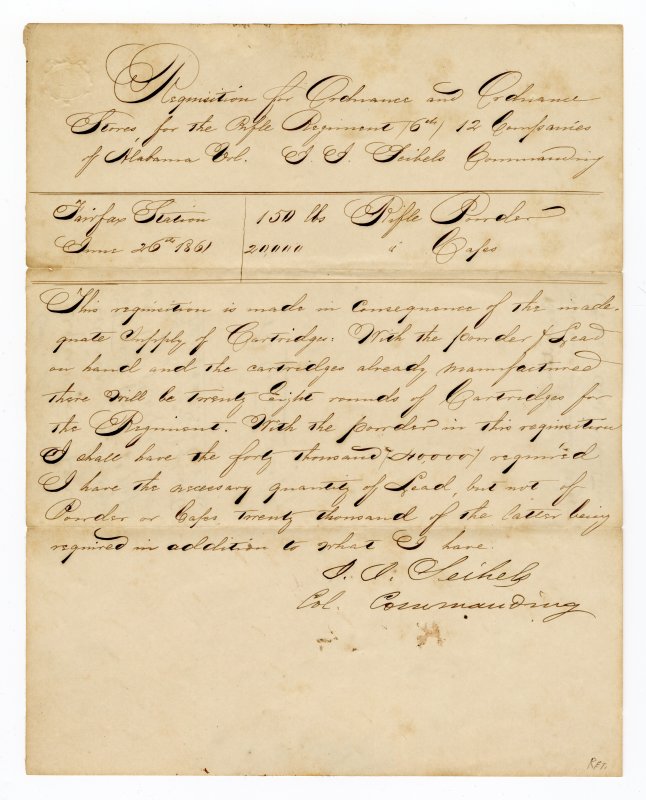 Requisition for Ordnance and Ordnance
Stores for the Rifle Regiment (6th) 12 Companies
of Alabama Vol. J. J. Seibels Commanding
Fairfax Station 150 lbs Rifle Powder
June 26th 1861 20000 " Caps
This requisition is made in consequence of the inade-
quate supply of Cartridges: With the powder & Lead
on hand and the cartridges already manufactured
there will be twenty Eight rounds of Cartridges for
the Regiment. With the powder in this requisition
I shall have the forty thousand (40000) required
I have the necessary quantity of Lead, but not of
Powder or Caps, twenty thousand of the latter being
required in addition to what I have.
J. J. Seibels
Col. Commanding